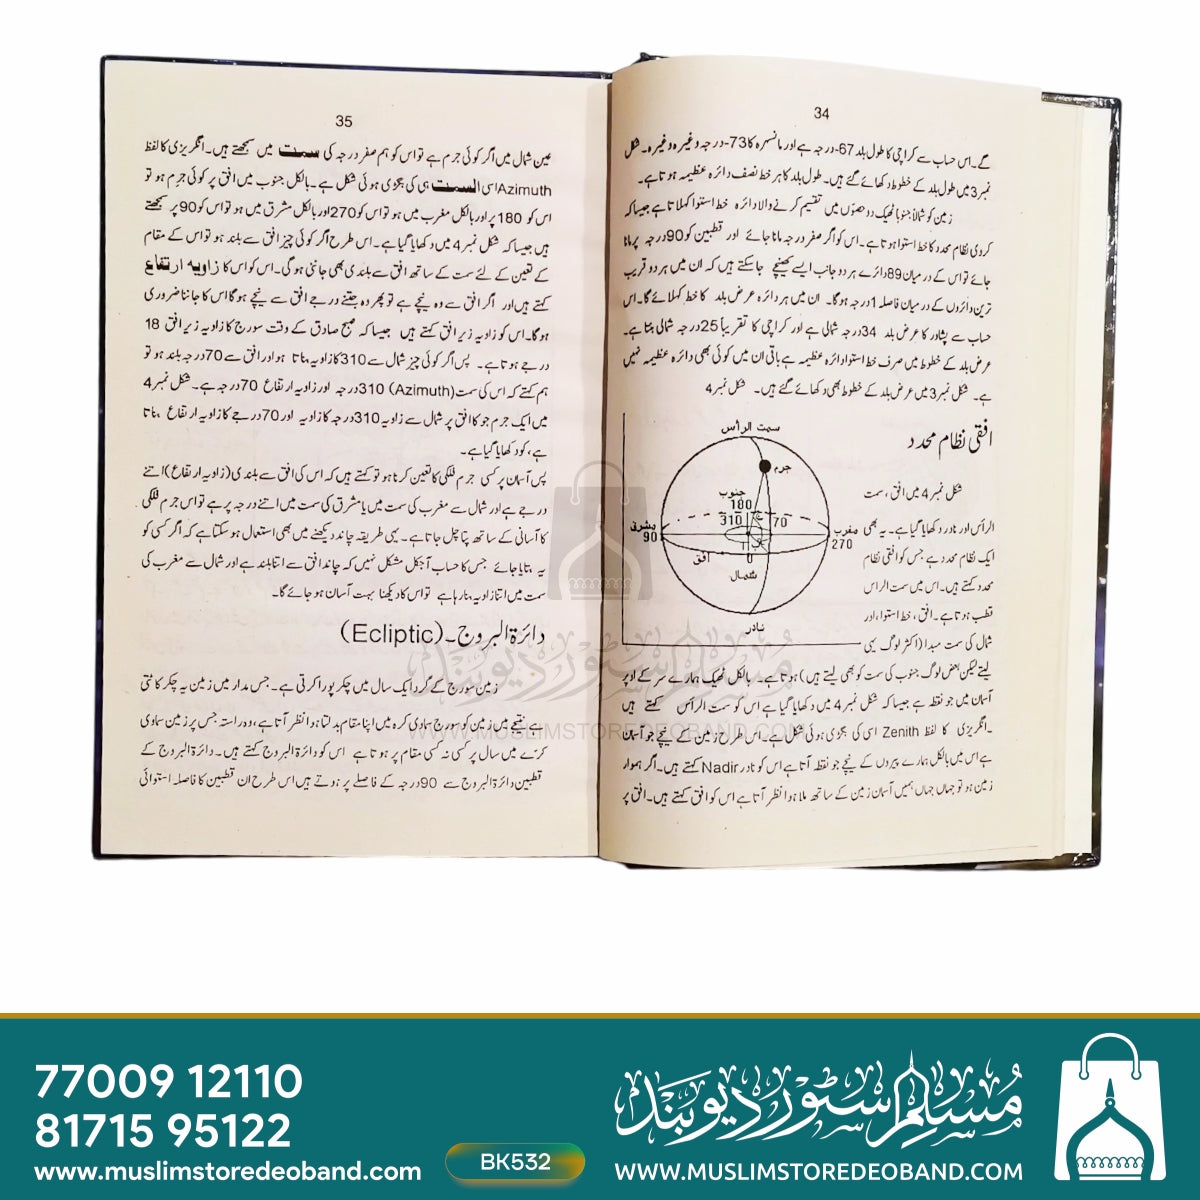 34
گے۔اس حساب سے کراچی کا طول بلد 67-درجہ ہے اور مانسہرہ کا 73-درجہ وغیرہ وغیرہ۔ شکل
نمبر 3 میں طول بلد کے خطوط دکھائے گئے ہیں۔ طول بلد کا ہر خط نصف دائرہ عظیمہ ہوتا ہے۔
زمین کو شمالاً جنوباً ٹھیک دو حصوں میں تقسیم کرنے والا دائرہ خط استوا کہلاتا ہے جیسا کہ
کروی نظام محدد کا خط استوا ہوتا ہے۔اس کو اگر صفر درجہ مانا جائے اور قطبین کو 90 درجہ پر مانا
جائے تو اس کے درمیان 89 دائرے ہر دو جانب ایسے کھینچے جاسکتے ہیں کہ ان میں ہر دو قریب
ترین دائروں کے درمیان فاصلہ 1 درجہ ہوگا۔ ان میں ہر دائرہ عرض بلد کا خط کہلائے گا۔اس
حساب سے پشاور کا عرض بلد 34 درجہ شمالی ہے اور کراچی کا تقریباً 25 درجہ شمالی بنتا ہے۔
عرض بلد کے خطوط میں صرف خط استوا دائرہ عظیمہ ہے باقی ان میں کوئی بھی دائرہ عظیمہ نہیں
ہے۔ شکل نمبر 3 میں عرض بلد کے خطوط بھی دکھائے گئے ہیں۔ شکل نمبر 4
افقی نظام محدد
سمت الرأس
جرم
جنوب
180
310
70
مشرق
90
مغرب
270
0
افق
شمال
نادر
شکل نمبر 4 میں افق، سمت
الرأس اور نادر دکھایا گیا ہے۔ یہ بھی
ایک نظام محدد ہے جس کو افقی نظام
محدد کہتے ہیں۔اس میں سمت الراس
قطب ہوتا ہے۔افق، خط استواء اور
شمال کی سمت مبدا (اکثر لوگ یہی
لیتے لیکن بعض لوگ جنوب کی سمت کو بھی لیتے ہیں) ہوتا ہے۔ بالکل ٹھیک ہمارے سر کے اوپر
آسمان میں جو نقطہ ہے جیسا کہ شکل نمبر 4 میں دکھایا گیا ہے اس کو سمت الرأس کہتے ہیں
۔انگریزی کا لفظ Zenith اسی کی بگڑی ہوئی شکل ہے۔اس طرح زمین کے نیچے جو آسمان
ہے اس میں بالکل ہمارے پیروں کے نیچے جو نقطہ آتا ہے اس کو نادر Nadir کہتے ہیں۔اگر ہموار
زمین ہو تو جہاں جہاں ہمیں آسمان زمین کے ساتھ ملا ہوا نظر آتا ہے اس کو افق کہتے ہیں۔افق پر
35
عین شمال میں اگر کوئی جرم ہے تو اس کو ہم صفر درجہ کی سمت میں سمجھتے ہیں۔انگریزی کا لفظ
Azimuth اسی السمت ہی کی بگڑی ہوئی شکل ہے۔بالکل جنوب میں افق پر کوئی جرم ہو تو
اس کو 180 پر اور بالکل مغرب میں ہو تو اس کو 270 اور بالکل مشرق میں ہو تو اس کو 90 پر سمجھتے
ہیں جیسا کہ شکل نمبر 4 میں دکھایا گیا ہے۔اس طرح اگر کوئی چیز افق سے بلند ہو تو اس کے مقام
کے تعین کے لئے سمت کے ساتھ افق سے بلندی بھی جاننی ہوگی۔اس کو اس کا زاویہ ارتفاع
کہتے ہیں اور اگر افق سے وہ نیچے ہے تو پھر وہ جتنے درجے افق سے نیچے ہوگا اس کا جاننا ضروری
ہوگا۔اس کو زاویہ زیر افق کہتے ہیں جیسا کہ صبح صادق کے وقت سورج کا زاویہ زیر افق 18
درجے ہوتا ہے۔ پس اگر کوئی چیز شمال سے 310 کا زاویہ بناتا ہو اور افق سے 70 درجہ بلند ہو تو
ہم کہتے کہ اس کی سمت (Azimuth) 310 درجہ اور زاویہ ارتفاع 70 درجہ ہے۔شکل نمبر 4
میں ایک جرم جو کہ افق پر شمال سے زاویہ 310 درجہ کا زاویہ اور 70 درجے کا زاویہ ارتفاع بناتا
ہے، کو دکھایا گیا ہے۔
پس آسمان پر کسی جرم فلکی کا تعین کرنا ہو تو کہتے ہیں کہ اس کی افق سے بلندی (زاویہ ارتفاع) اتنے
درجے ہے اور شمال سے مغرب کی سمت میں یا مشرق کی سمت میں اتنے درجہ پر ہے تو اس جرم فلکی
کا آسانی کے ساتھ پتا چل جاتا ہے۔ یہی طریقہ چاند دیکھنے میں بھی استعمال ہو سکتا ہے کہ اگر کسی کو
یہ بتایا جائے جس کا حساب آجکل مشکل نہیں کہ چاند افق سے اتنا بلند ہے اور شمال سے مغرب کی
سمت میں اتنا زاویہ بنا رہا ہے تو اس کا دیکھنا بہت آسان ہو جائے گا۔
دائرۃ البروج۔(Ecliptic)
زمین سورج کے گرد ایک سال میں چکر پورا کرتی ہے۔ جس مدار میں زمین یہ چکر کاٹتی
نتیجے میں زمین کو سورج سماوی کرہ میں اپنا مقام بدلتا ہوا نظر آتا ہے، وہ راستہ جس پر زمین سماوی
کرّے میں سال پر کسی نہ کسی مقام پر ہوتا ہے اس کو دائرۃ البروج کہتے ہیں۔دائرۃ البروج کے
قطبین دائرۃ البروج سے 90 درجہ کے فاصلے پر ہوتے ہیں اس طرح ان قطبین کا فاصلہ استوائی
مسلم سٹور دیوبند
WWW.MUSLIMSTOREDEOBAND.COM
77009 12110
81715 95122
www.muslimstoredeoband.com
BK532
مسلم سٹور دیوبند
WWW.MUSLIMSTOREDEOBAND.COM